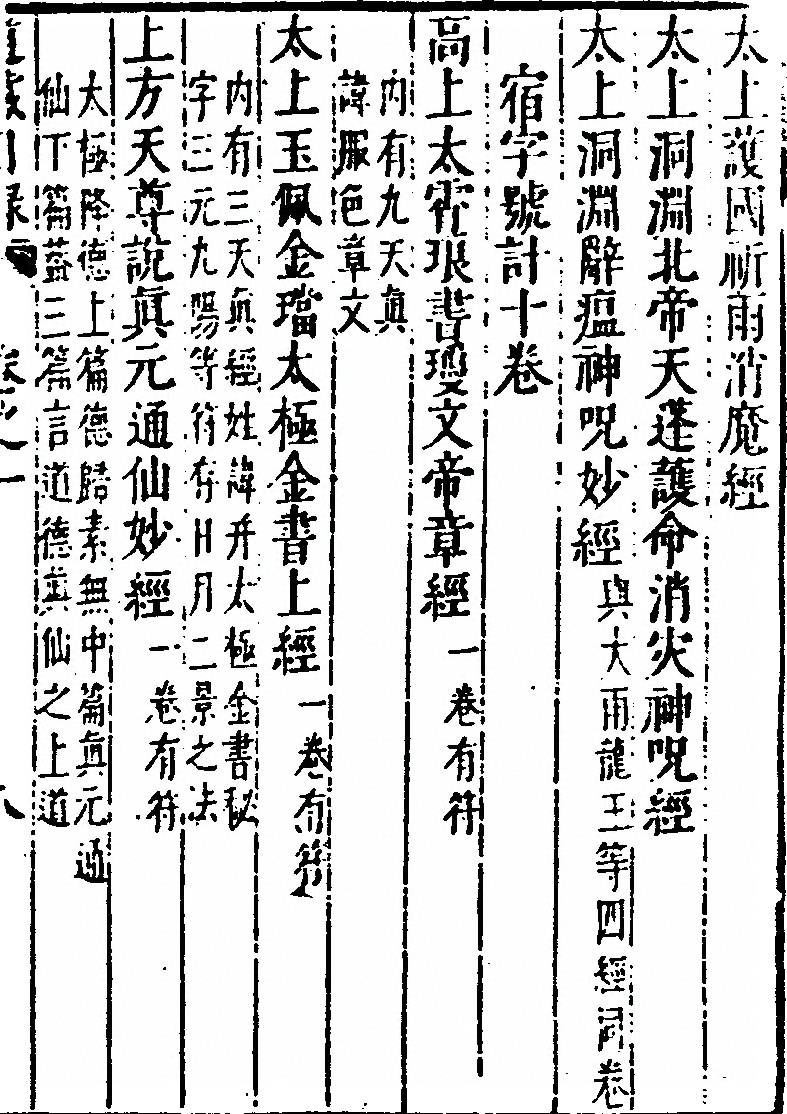 太上護國祈雨消魔經
太上洞淵北帝天蓬護命消災神呪經
太上洞淵辭瘟神呪妙經與大雨龍王等四經同卷
宿字號計十卷
高上太霄琅書瓊文帝章經一卷有符
內有九天眞
諱服色章文
太上玉佩金璫太極金書上經一卷有符
內有三天眞經姓諱并太極金書秘
字三元九陽等符存日月二景之法
上方天尊說眞元通仙妙經一卷有符
大極降德上篇德歸素無中篇眞元通
仙下篇葢三篇言道德眞仙之上道
道藏目錄 卷之一 八